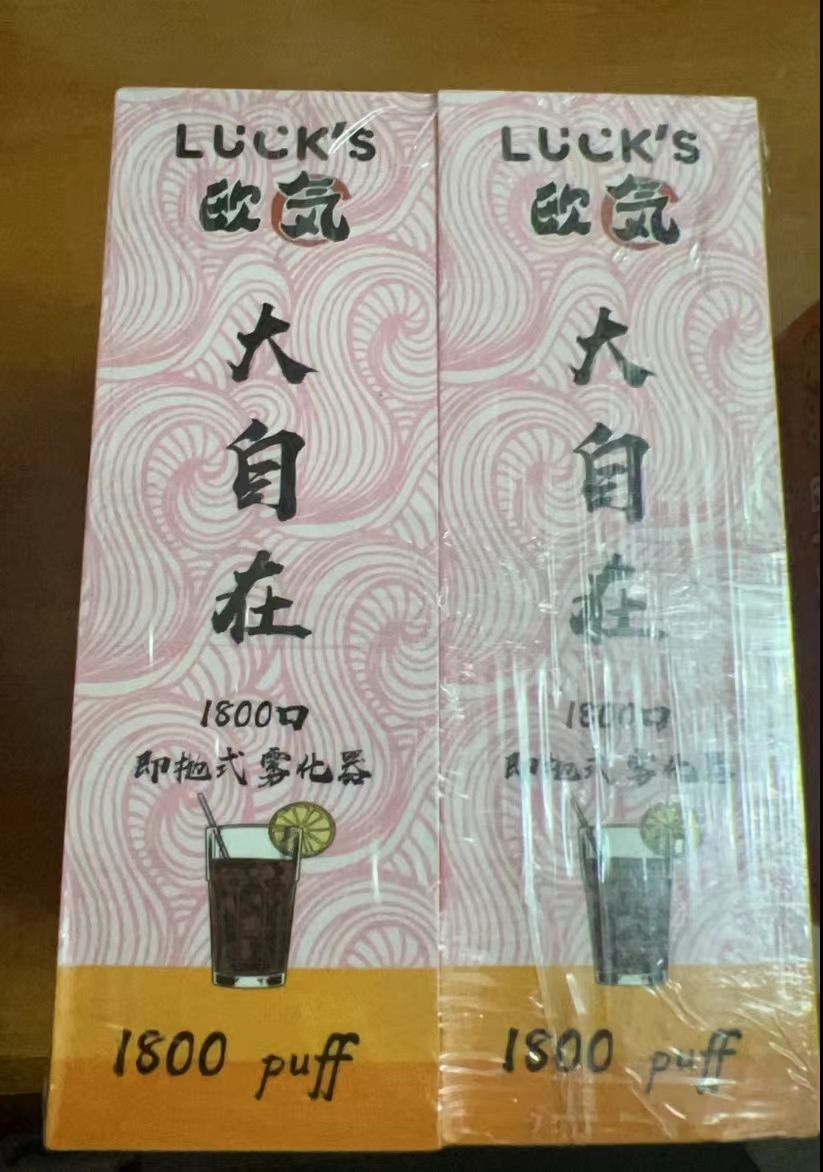 LUCK's
欧気
大
自
在
1800口
即抛式雾化器
1800 puff
LUCK's
欧気
大
自
在
1800口
即抛式雾化器
1800 puff